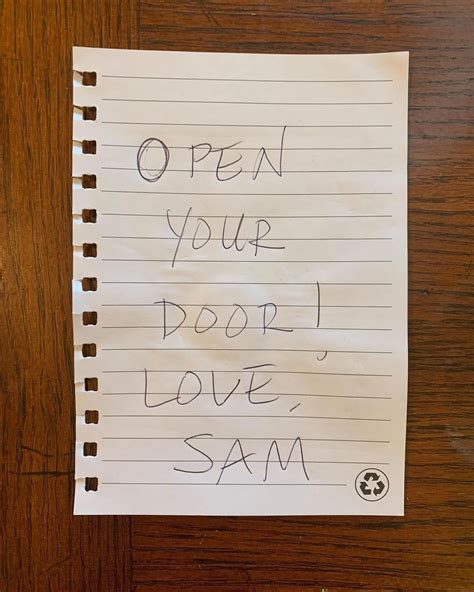 OPEN
YOUR
DOOR!
LOVE,
SAM